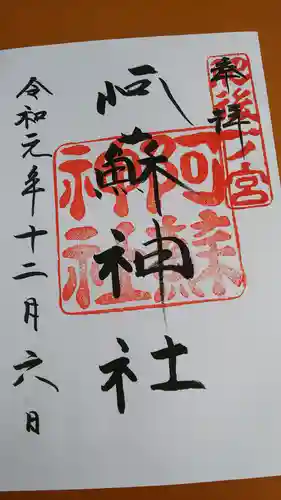 奉拝
肥後一ノ宮
阿蘇神社
阿蘇神社
令和元年十二月六日